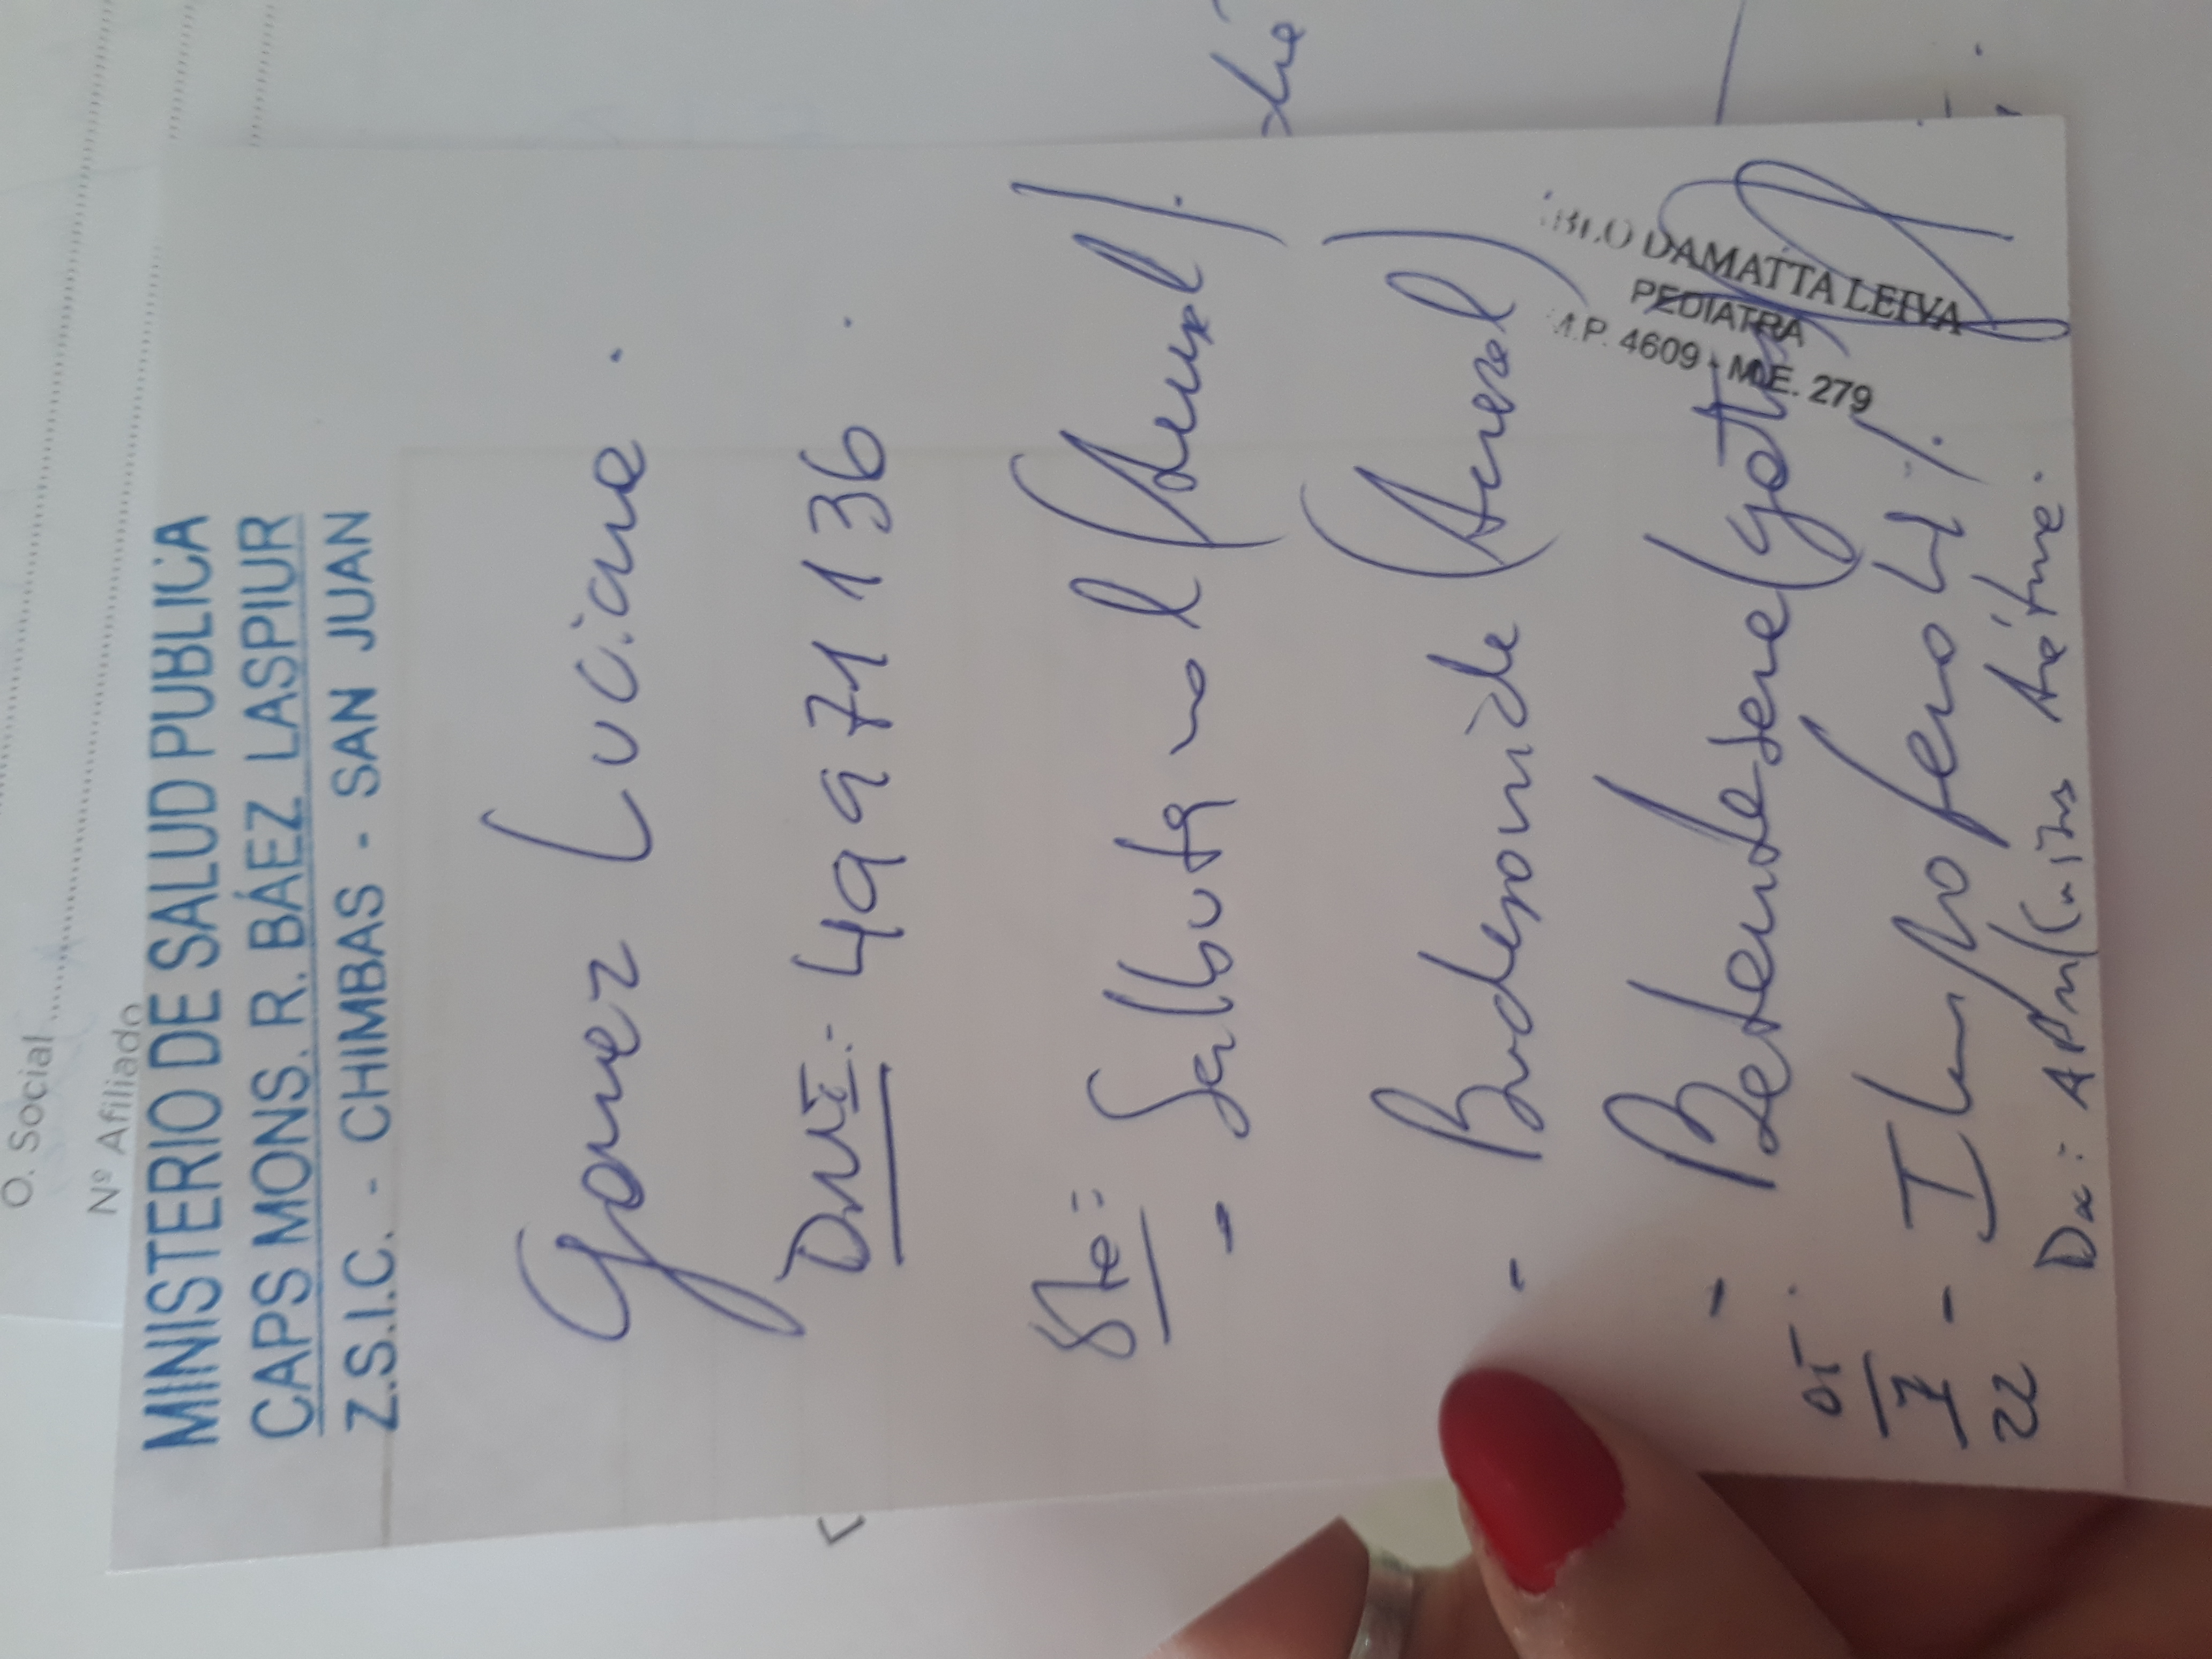 O. Social
Nº Afiliado
MINISTERIO DE SALUD PUBLICA
CAPS MONS. R. BÁEZ LASPIUR
Z.S.I.C. - CHIMBAS - SAN JUAN
Gomez Luciana.
DNI:- 49971136.
Rte=
- Salbutamol (Aerosol).
- Budesonide (Aerosol)
- Betametasona (gotas)
- Ibuprofeno 4%.
Dx: (crisis
DAMATTA LEIVA
PEDIATRA
M.P. 4609 - M.E. 279
7
22